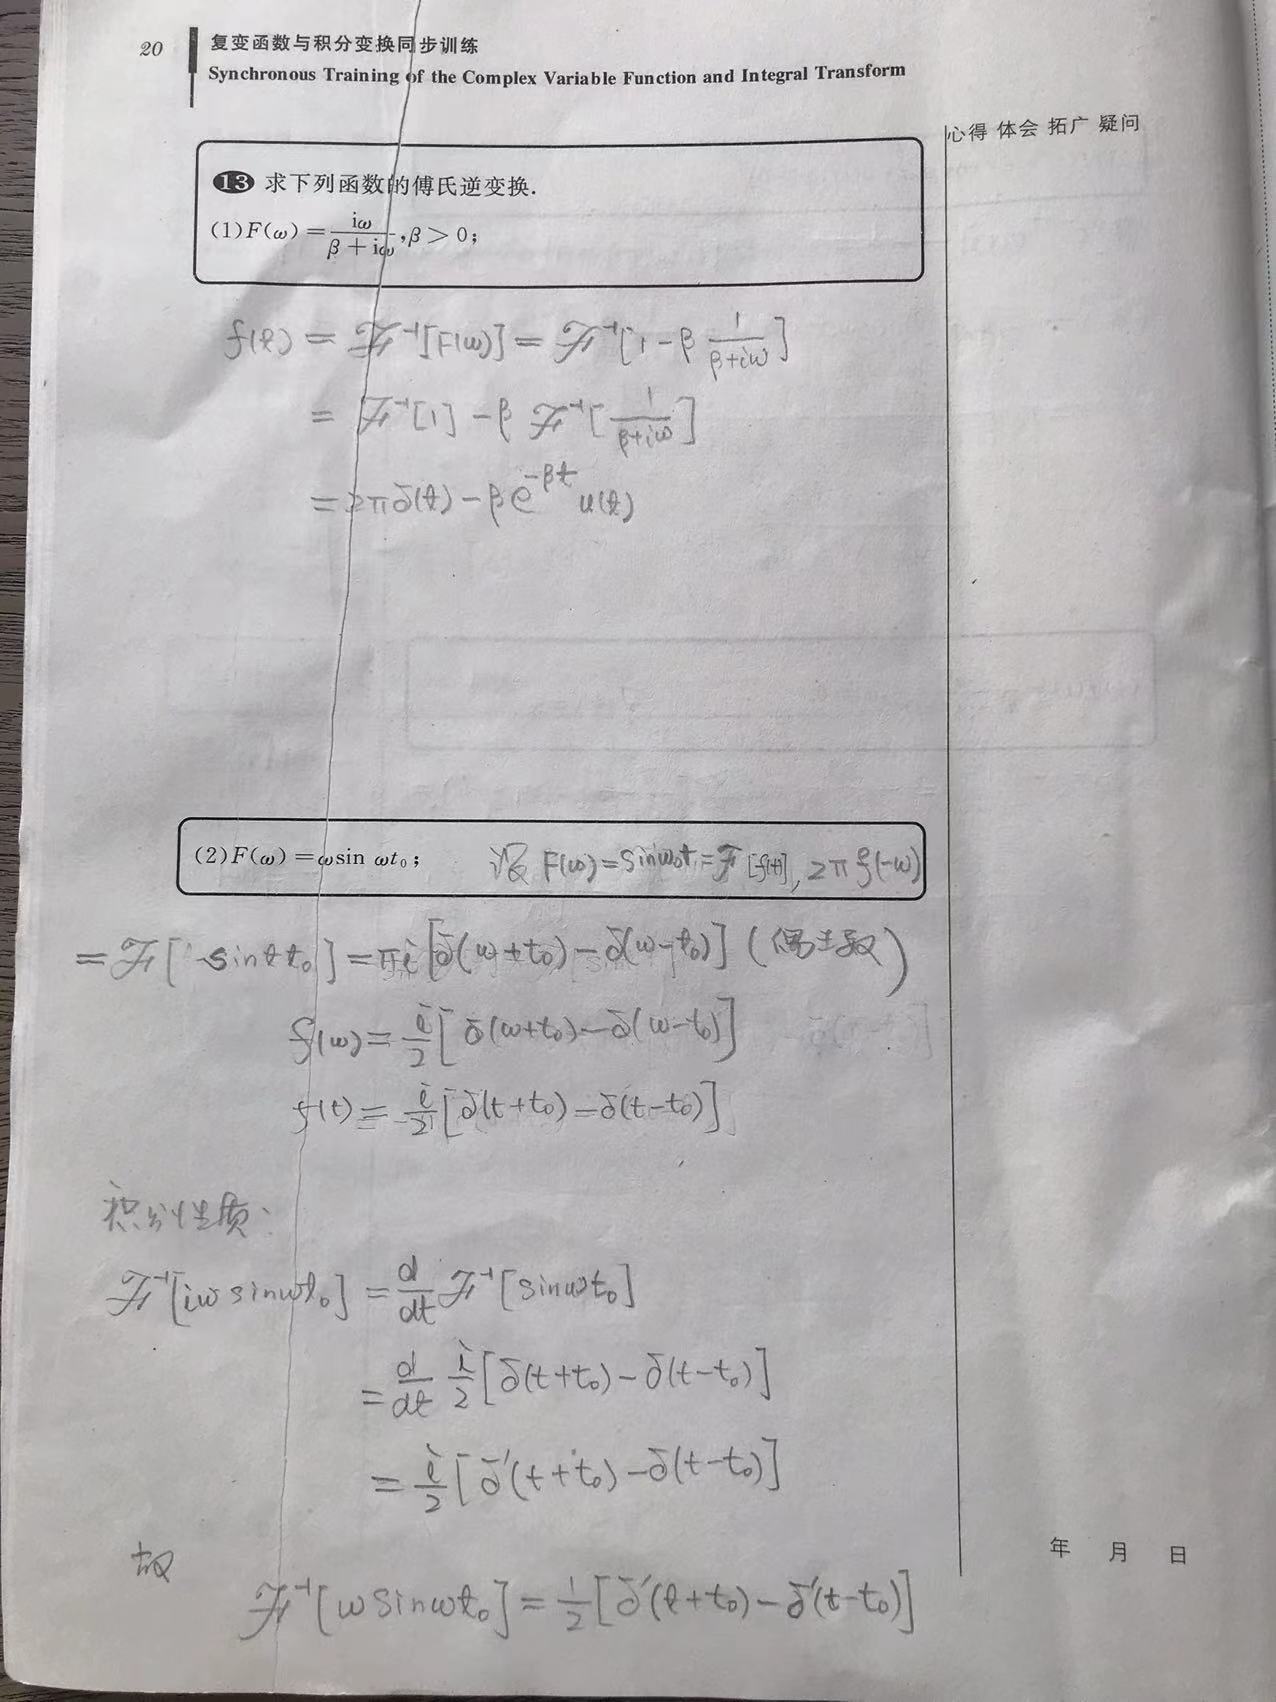 20
复变函数与积分变换同步训练
Synchronous Training of the Complex Variable Function and Integral Transform
心得 体会 拓广 疑问
13 求下列函数的傅氏逆变换.
(1)F(ω)=iω/(β+iω),β>0;
f(t) = ℱ⁻¹[F(ω)] = ℱ⁻¹[1-β 1/(β+iω)]
= ℱ⁻¹[1] -β ℱ⁻¹[1/(β+iω)]
=2πδ(t)-βe^{-βt}u(t)
(2)F(ω)=ωsin ωt₀; 设 F(ω)=sinω₀t=ℱ[f(t)], 2πf(-ω)
=ℱ[sin t t₀]=πi[δ(ω+t₀)-δ(ω-t₀)](偶函数)
f(ω)=i/2[δ(ω+t₀)-δ(ω-t₀)]
f(t)=-i/2[δ(t+t₀)-δ(t-t₀)]
积分性质:
ℱ⁻¹[iωsinωt₀]=d/dt ℱ⁻¹[sinωt₀]
=d/dt i/2[δ(t+t₀)-δ(t-t₀)]
=i/2[δ'(t+t₀)-δ(t-t₀)]
故
ℱ⁻¹[ωsinωt₀]=1/2[δ'(t+t₀)-δ'(t-t₀)]
年 月 日